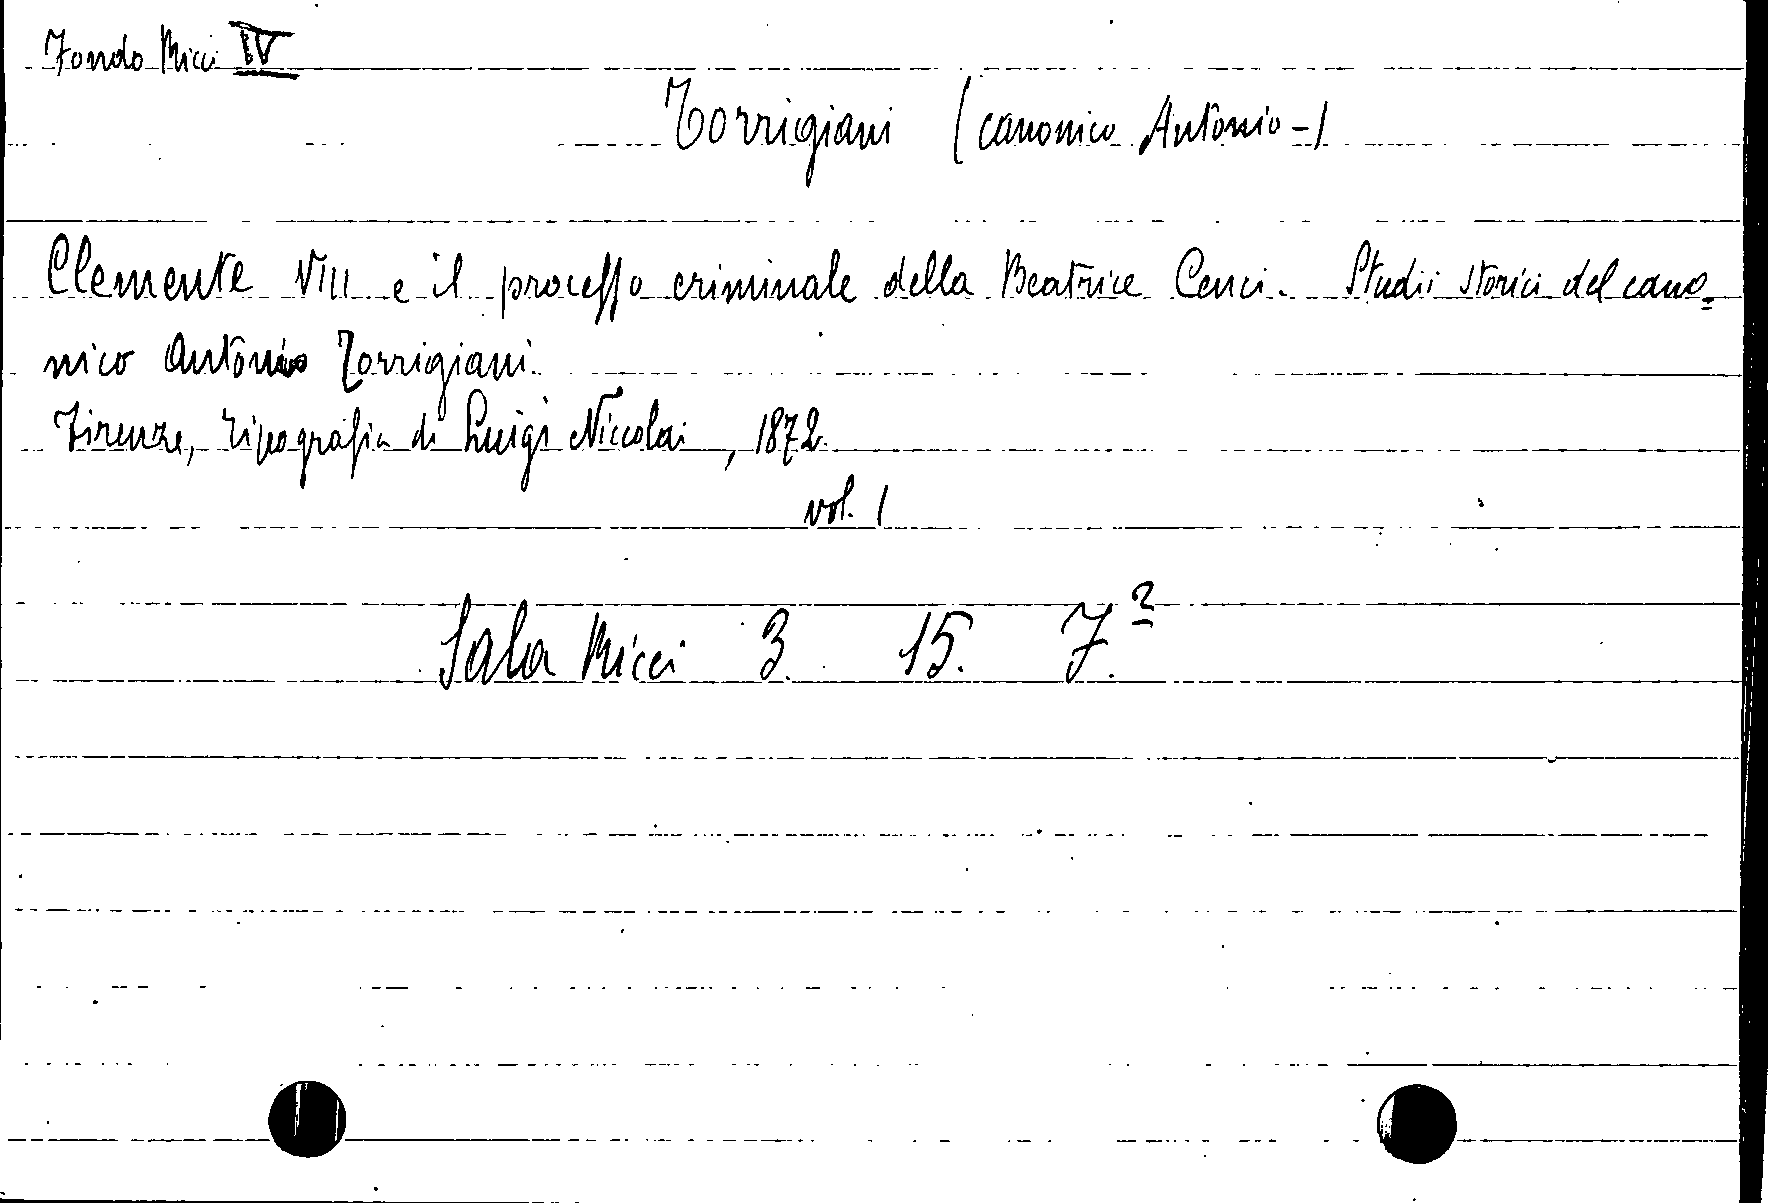 Fondo Ricci IV
Torrigiani (canonico Antonio-)
Clemente VIII e il processo criminale della Beatrice Cenci. Studii storici del cano=
nico Antonio Torrigiani.
Firenze, tipografia di Luigi Niccolai, 1872.
vol. 1
Sala Ricci 3. 15. 7.²